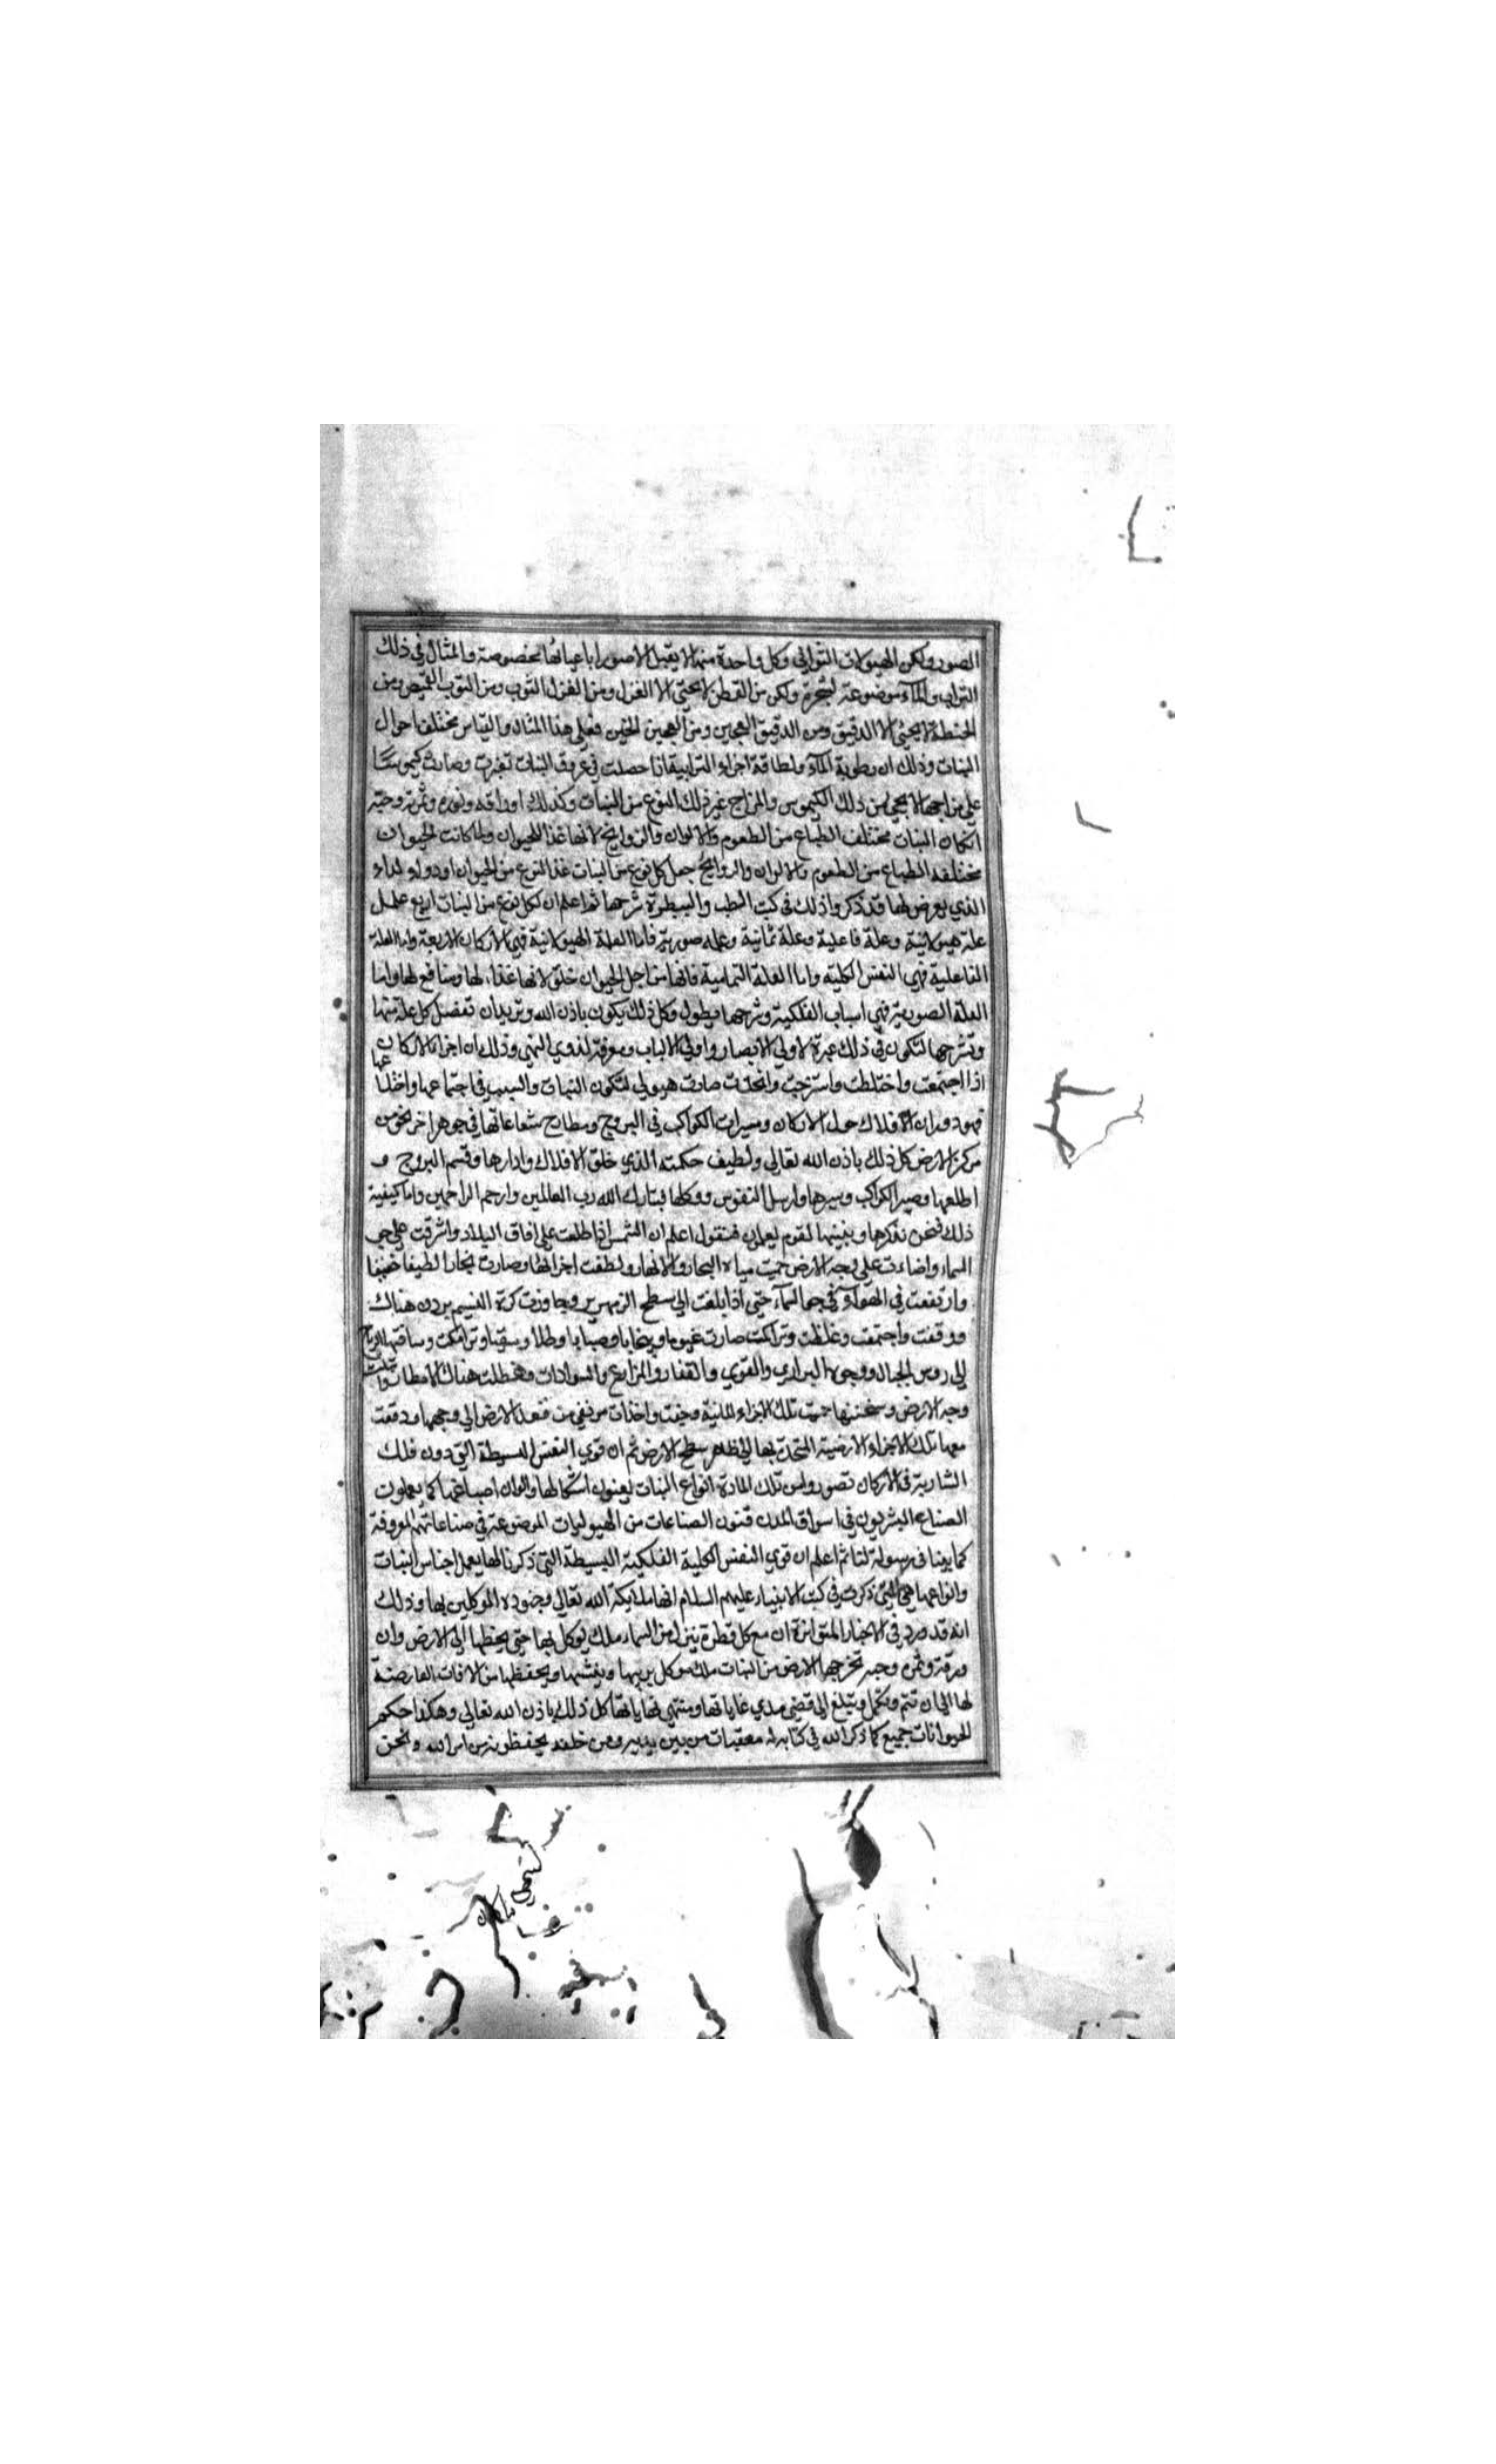 الصور ولكن الهيولات الثواني وكل واحدة منها لا يقبل الا صورا باعيانها مخصوصة والمثال في ذلك
التراب والمآء موضوعة لشجرة ولكن من القطن لا يجئ الا الغزل ومن الغزل الثوب ومن الثوب القميص ومن
الحنطة لا يجئ الا الدقيق ومن الدقيق العجين ومن العجين الخبز فعلى هذا المثال والقياس مختلف احوال
النبات وذلك ان رطوبة المآء ولطافة اجزاء التراب اذا حصلت في عروق النبات تغيرت وصارت كيموسا
علي مزاجها لا يجئ من ذلك الكيموس والمزاج غير ذلك النوع من النبات وكذلك اوراقه ونوره وثمرته وحبه
لكان النبات مختلف الطباع من الطعوم والالوان والروايح لانها غذا للحيوان ولما كانت الحيوان
مختلفه الطباع من الطعوم والالوان والروايح جعل كل نوع من النبات غذا لنوع من الحيوان او دواء لداء
الذي يعرض لها قد ذكروا ذلك في كتب الطب والبيطرة شرحها ثم اعلم ان لكل نوع من النبات اربع علل
علة هيولانية وعلة فاعلية وعلة تمامية وعله صورية فاما العلة الهيولانية فهي الاركان الاربعة واما العلة
الفاعلية فهي النفس الكلية واما العلة التمامية فانها من اجل الحيوان خلق لانها غذاء لها ومنافع لها واما
العلة الصورية فهي اسباب الفلكية وشرحها يطول وكل ذلك يكون باذن الله ونريد ان نفصل كل علة منها
ونشرحها لتكون في ذلك عبرة لاولي الابصار واولي الالباب ومعرفة لذوي النهي وذلك ان اجزاء الاركان
اذا اجتمعت واختلطت وامتزجت واتحدت صارت هيولي لتكون النبات والسبب في اجتماعها واختلاطها
فهو دوران الافلاك حول الاركان ومسيرات الكواكب في البروج ومطارح شعاعاتها في جوهر اخر نحو من
مركز الارض كل ذلك باذن الله تعالي ولطيف حكمته الذي خلق الافلاك وادارها وقسم البروج و
اطلعها وصير الكواكب وسيرها وارسل النفوس ووكلها فتبارك الله رب العالمين وارحم الراحمين واما كيفية
ذلك فنحن نذكرها ونبينها لقوم يعلمون فنقول اعلم ان الشمس اذا طلعت علي افاق البلاد واشرقت علي جو
السماء واضاءت علي وجه الارض حميت مياه البحار والانهار ولطفت اجزائها وصارت بخارا لطيفا خفيفا
وارتفعت في الهوآء في جو السمآء حتي اذا بلغت الي سطح الزمهرير وجاوزت كرة النسيم بردت هناك
ووقفت واجتمعت وغلظت وتراكمت صارت غيوما وضبابا وطلا وتراكمت وساقتها الرياح
الي روس الجبال ووجوه البراري والقري والقفار والمزارع والسوادات وهطلت هناك الامطار وابتلت
وجه الارض وسخنتها حميت تلك الاجزاء المائية وخفت واخذت ترتقي من قعد الارض الي وجهها ودفعت
معها تلك الاجزاء الارضية المتحدة بها الي ظاهر سطح الارض ثم ان قوي النفس البسيطة التي دون فلك
السارية في الاركان تصور من تلك المادة انواع النبات بفنون اشكالها والوان اصباغها كما يعملون
الصناع البشريون في اسواق المدن فنون الصناعات من الهيوليات الموضوعة في صناعاتهم المعروفة
كما بينا في رسولة لنا ثم اعلم ان قوي النفس الكلية الفلكية البسيطة التي ذكرنا لها يعمل اجناس النبات
وانواعها هي التي ذكرت في كتب الانبياء عليهم السلام انها ملايكة الله تعالي وجنوده الموكلين بها وذلك
انه قد ورد في الاخبار المتواترة ان مع كل قطرة ينزل من السماء ملك يوكل بها حتي يحطها الي الارض وان
ورقة وثمرة وحبه تخرجها الارض من النبات ملك موكل يربيها وينشيها ويحفظها من الافات العارضة
لها الي ان تتم وتكمل وتبلغ الي قضي مدي غاياتها ومنتهي نهاياتها كل ذلك باذن الله تعالي وهكذا حكم
الحيوانات جميع كما ذكر الله في كتابه له معقبات من بين يديه ومن خلفه يحفظونه من امر الله ونحن